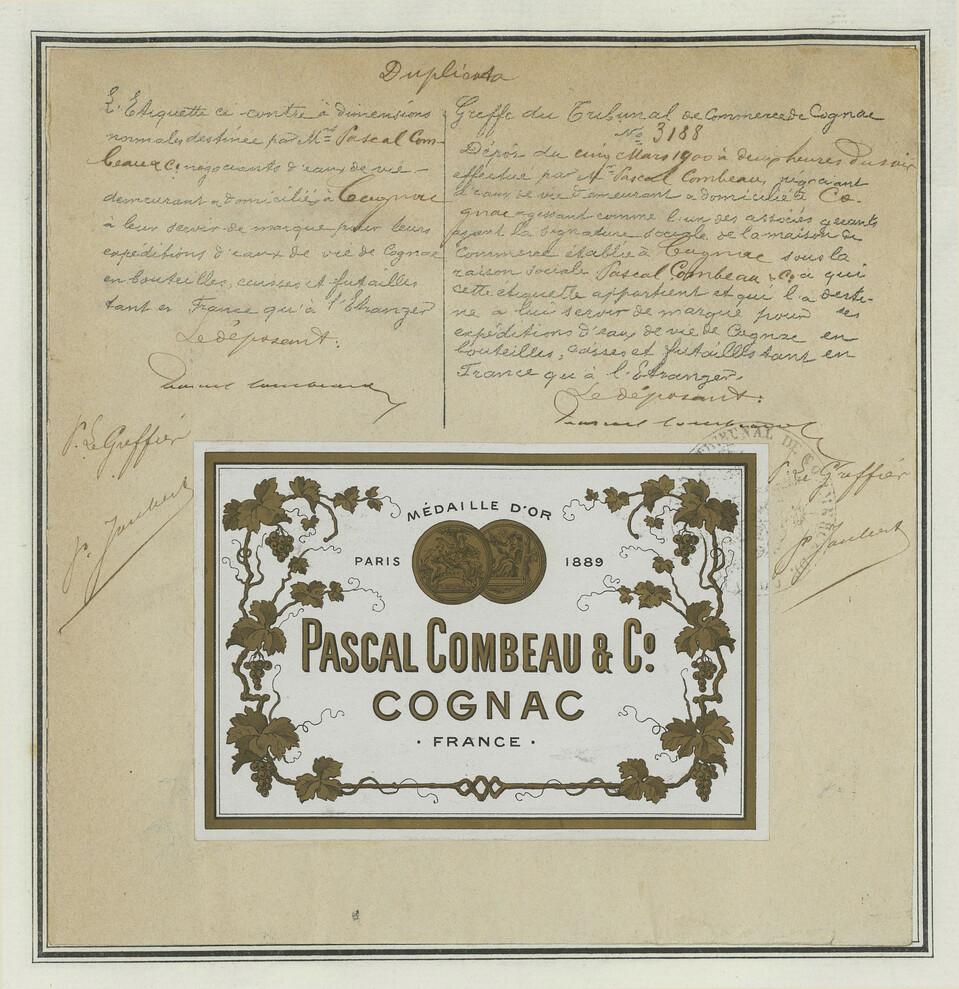 Duplicata
L'Etiquette ci-contre à dimensions
normales destinée par Mrs Pascal Com-
beau & Co négociants d'eaux de vie
demeurant & domiciliés à Cognac
à leur servir de marque pour leurs
expéditions d'eaux de vie de Cognac
en bouteilles, caisses et futailles
tant en France qu'à l'Etranger
Le déposant:
Pascal Combeau
P. Le Greffier
P. Jaubert
Greffe du Tribunal de Commerce de Cognac
No 3188
Dépôt du cinq Mars 1900 à deux heures du soir
effectué par Mr Pascal Combeau, négociant
d'eaux de vie demeurant & domicilié à Co-
gnac agissant comme l'un des associés gérants
ayant la signature sociale de la maison de
Commerce établie à Cognac sous la
raison sociale Pascal Combeau & Co à qui
cette étiquette appartient et qui l'a desti-
né à lui servir de marque pour ses
expéditions d'eau de vie de Cognac en
bouteilles, caisses et futailles tant en
France qu'à l'Etranger.
Le déposant:
Pascal Combeau
P. Le Greffier
P. Jaubert
TRIBUNAL DE CO
MÉDAILLE D'OR
PARIS 1889
PASCAL COMBEAU & Co
COGNAC
· FRANCE ·